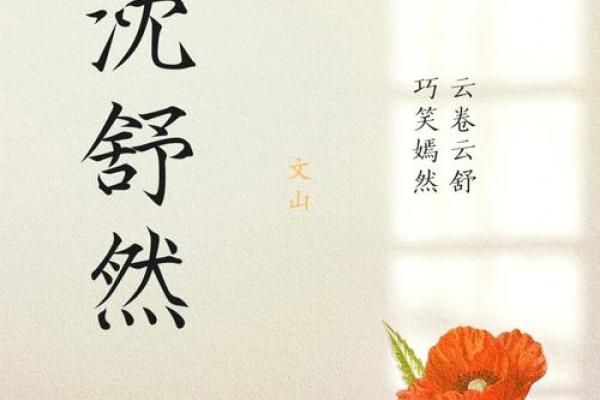 沈舒然
文山
云卷云舒
巧笑嫣然